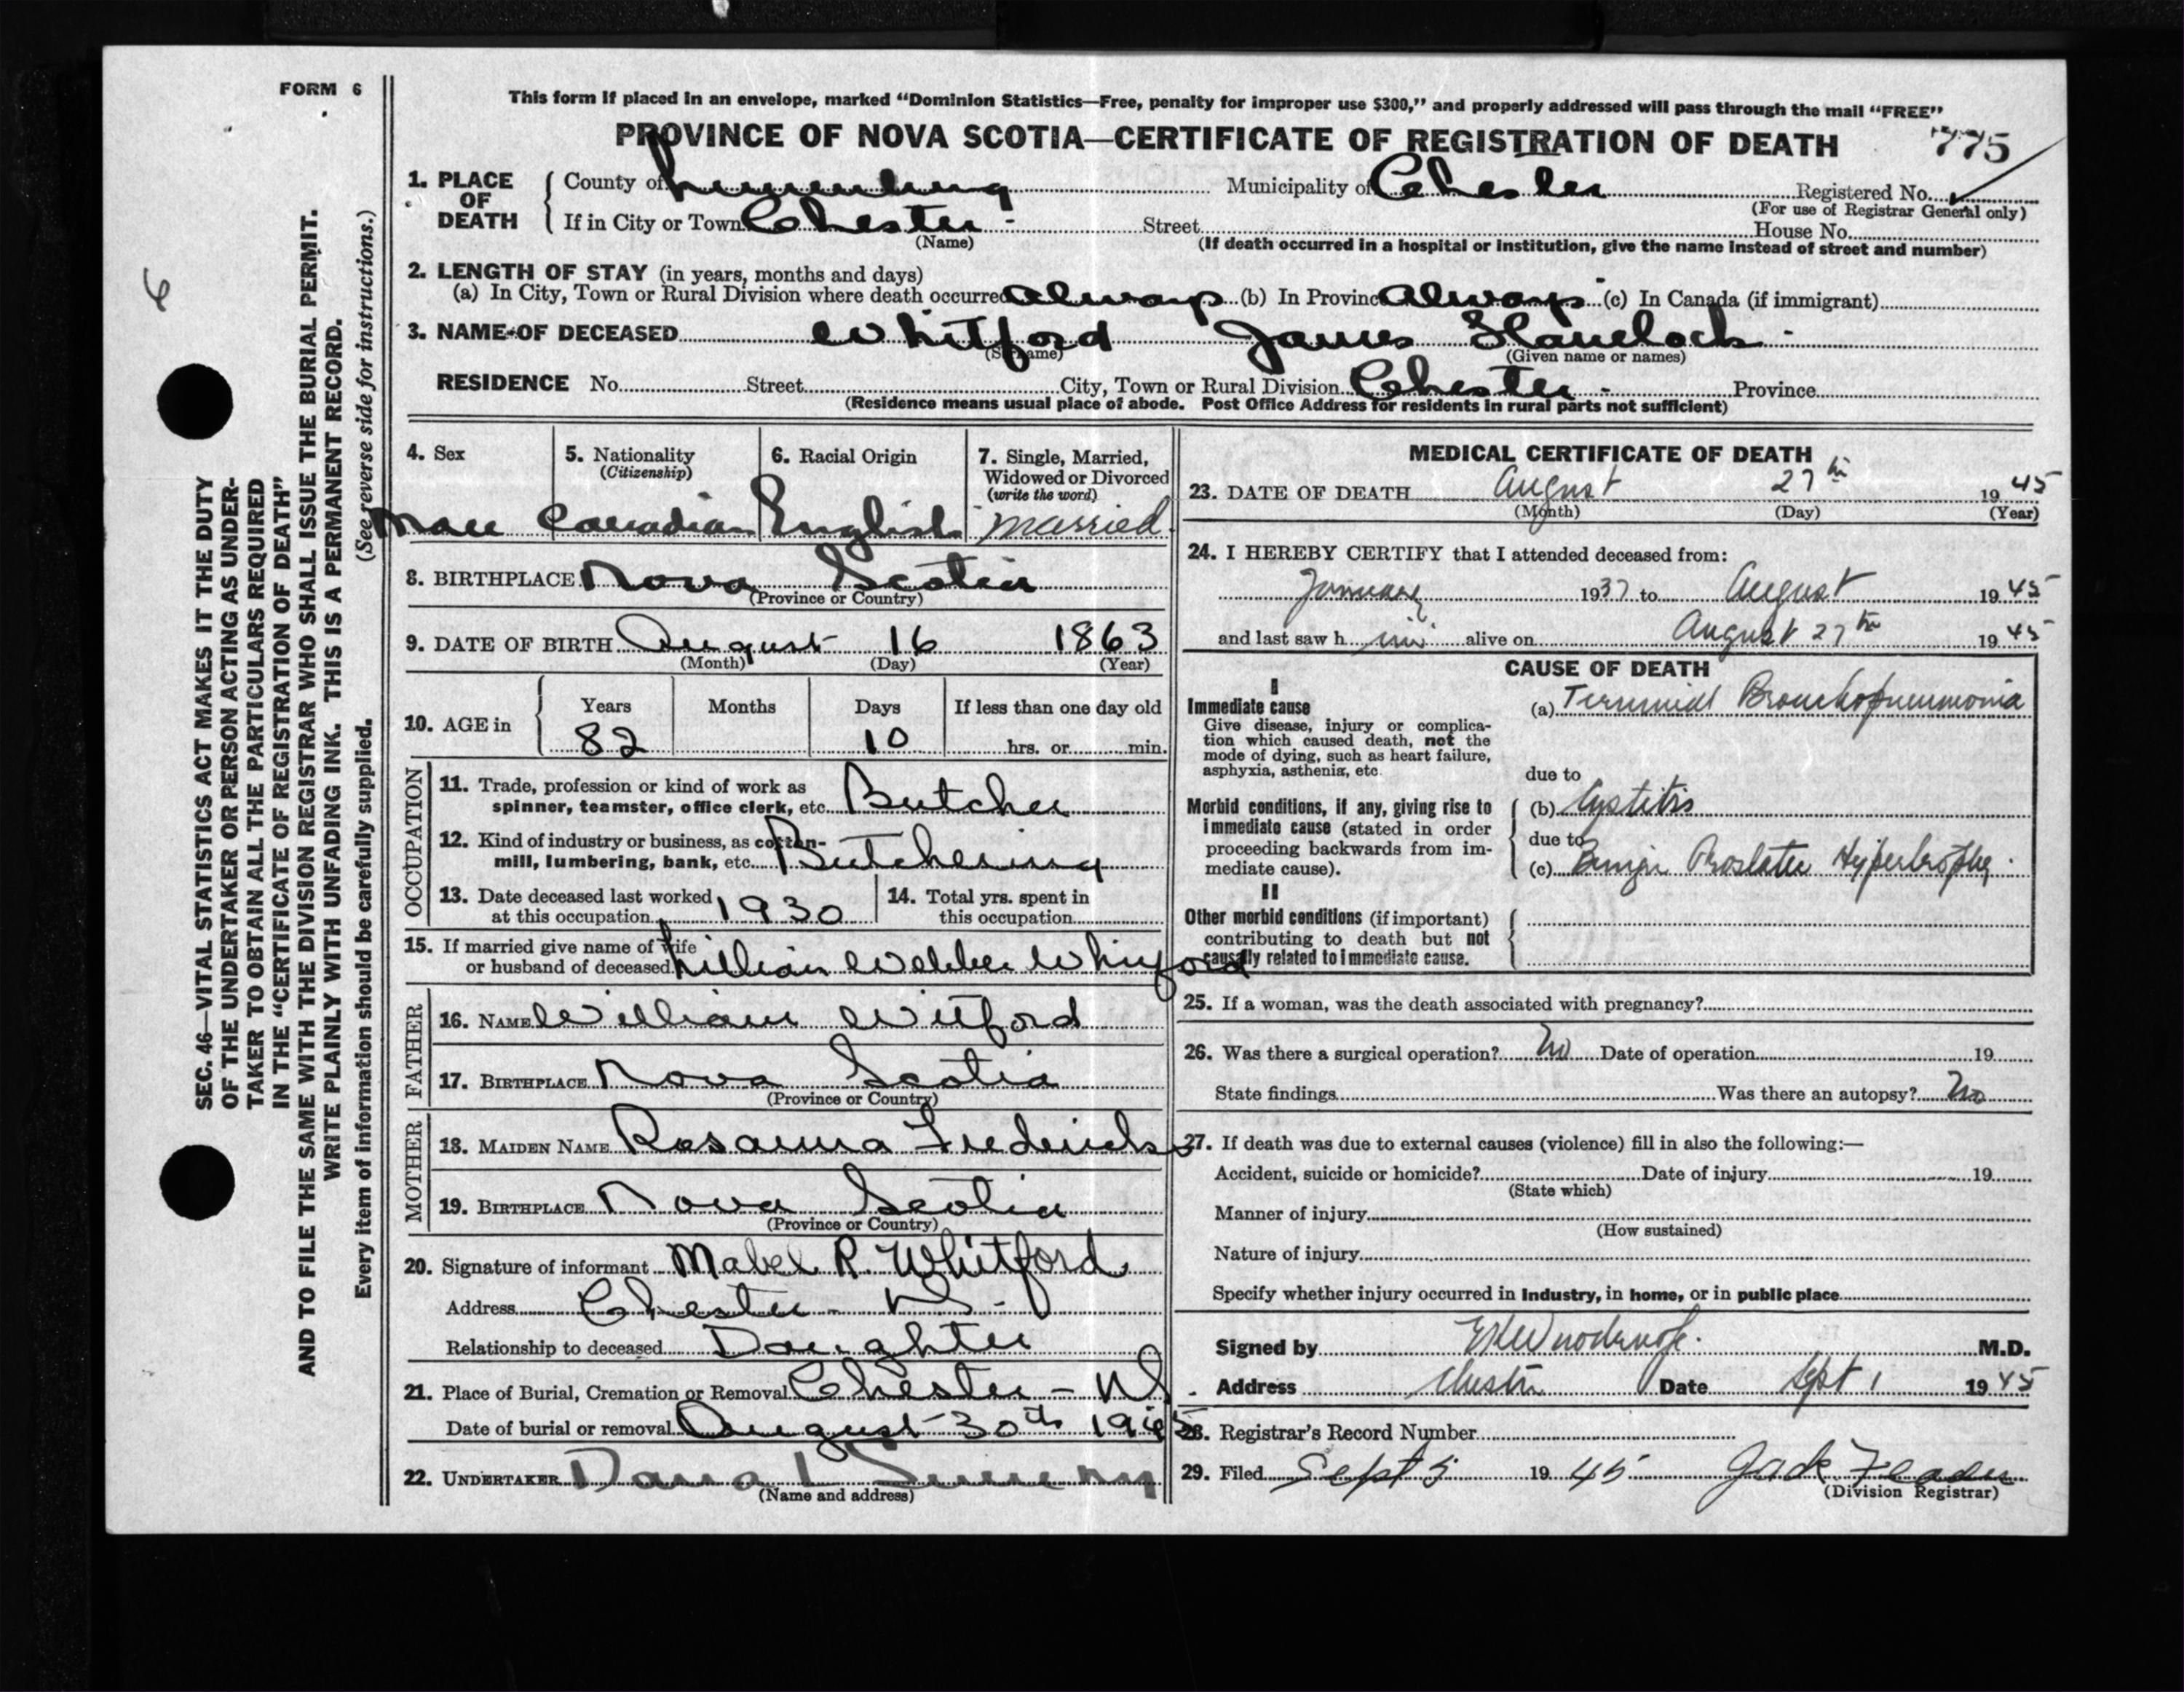 FORM 6
This form if placed in an envelope, marked "Dominion Statistics—Free, penalty for improper use $300," and properly addressed will pass through the mail "FREE"
PROVINCE OF NOVA SCOTIA—CERTIFICATE OF REGISTRATION OF DEATH 775
1. PLACE OF DEATH
County of Lunenburg Municipality of Chester Registered No.
(For use of Registrar General only)
If in City or Town Chester Street House No.
(Name) (If death occurred in a hospital or institution, give the name instead of street and number)
2. LENGTH OF STAY (in years, months and days)
(a) In City, Town or Rural Division where death occurred Always (b) In Province Always (c) In Canada (if immigrant)
3. NAME OF DECEASED Whitford James Havelock
(Surname) (Given name or names)
RESIDENCE No. Street City, Town or Rural Division Chester Province
(Residence means usual place of abode. Post Office Address for residents in rural parts not sufficient)
4. Sex Male
5. Nationality (Citizenship) Canadian
6. Racial Origin English
7. Single, Married, Widowed or Divorced (write the word) Married
8. BIRTHPLACE Nova Scotia
(Province or Country)
9. DATE OF BIRTH August 16 1863
(Month) (Day) (Year)
10. AGE in Years 82 Months Days 10 If less than one day old hrs. or min.
OCCUPATION
11. Trade, profession or kind of work as
spinner, teamster, office clerk, etc. Butcher
12. Kind of industry or business, as cotton-
mill, lumbering, bank, etc. Butchering
13. Date deceased last worked
at this occupation 1930
14. Total yrs. spent in
this occupation
15. If married give name of wife
or husband of deceased Lillian Webber Whitford
FATHER
16. NAME William Witford
17. BIRTHPLACE Nova Scotia
(Province or Country)
MOTHER
18. MAIDEN NAME Rosanna Fredericks
19. BIRTHPLACE Nova Scotia
(Province or Country)
20. Signature of informant Mabel R. Whitford
Address Chester - NS -
Relationship to deceased Daughter
21. Place of Burial, Cremation or Removal Chester - NS
Date of burial or removal August 30th 1945
22. UNDERTAKER
(Name and address)
MEDICAL CERTIFICATE OF DEATH
23. DATE OF DEATH August 27th 1945
(Month) (Day) (Year)
24. I HEREBY CERTIFY that I attended deceased from:
January 1937 to August 1945
and last saw him alive on August 27th 1945
CAUSE OF DEATH
I
Immediate cause
Give disease, injury or complica-
tion which caused death, not the
mode of dying, such as heart failure,
asphyxia, asthenia, etc.
(a) Terminal Bronchopneumonia
due to
Morbid conditions, if any, giving rise to
immediate cause (stated in order
proceeding backwards from im-
mediate cause).
(b) Cystitis
due to
(c) Benign Prostatic Hypertrophy.
II
Other morbid conditions (if important)
contributing to death but not
causally related to immediate cause.
25. If a woman, was the death associated with pregnancy?
26. Was there a surgical operation? No Date of operation 19
State findings Was there an autopsy? No
27. If death was due to external causes (violence) fill in also the following:—
Accident, suicide or homicide? Date of injury 19
(State which)
Manner of injury
(How sustained)
Nature of injury
Specify whether injury occurred in Industry, in home, or in public place
Signed by M.D.
Address Chester Date Sept 1 1945
28. Registrar's Record Number
29. Filed Sept 5 1945 Jack
(Division Registrar)
SEC. 46—VITAL STATISTICS ACT MAKES IT THE DUTY
OF THE UNDERTAKER OR PERSON ACTING AS UNDER-
TAKER TO OBTAIN ALL THE PARTICULARS REQUIRED
IN THE "CERTIFICATE OF REGISTRATION OF DEATH"
AND TO FILE THE SAME WITH THE DIVISION REGISTRAR WHO SHALL ISSUE THE BURIAL PERMIT.
WRITE PLAINLY WITH UNFADING INK. THIS IS A PERMANENT RECORD.
Every item of information should be carefully supplied. (See reverse side for instructions.)